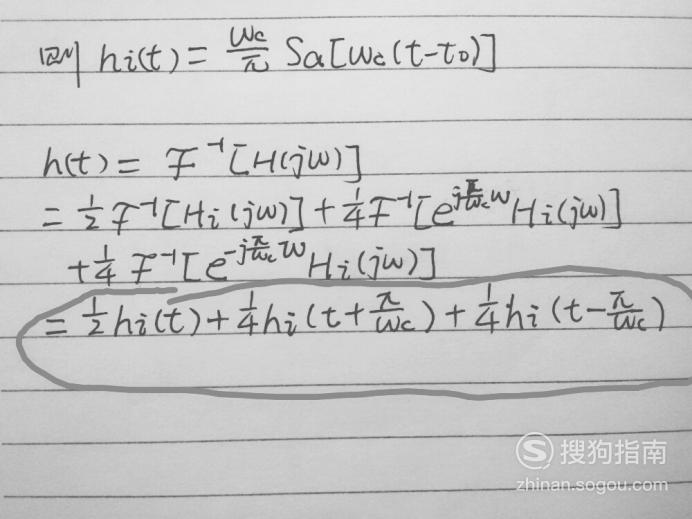 则 hi(t) = ωc/π Sa[ωc(t-t0)]
h(t) = F⁻¹[H(jω)]
= 1/2 F⁻¹[Hi(jω)] + 1/4 F⁻¹[e^{j(π/ωc)ω} Hi(jω)]
+ 1/4 F⁻¹[e^{-j(π/ωc)ω} Hi(jω)]
= 1/2 hi(t) + 1/4 hi(t + π/ωc) + 1/4 hi(t - π/ωc)
S 搜狗指南
zhinan.sogou.com